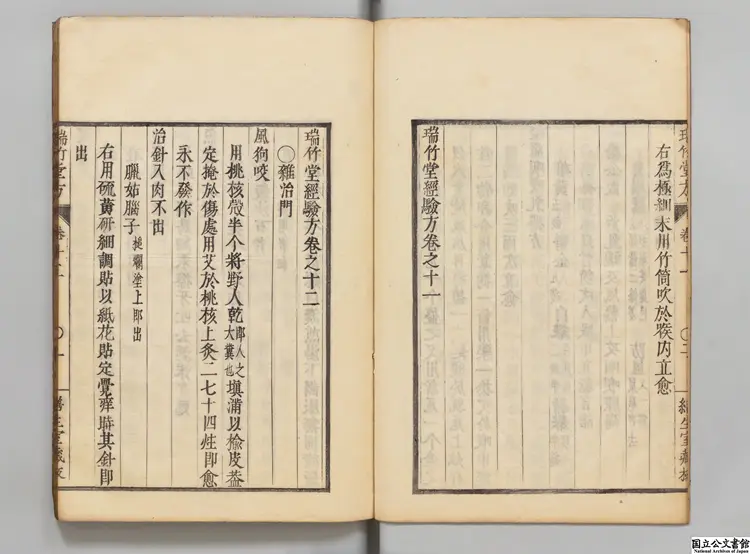 右爲極細末用竹筒吹於喉内立愈
瑞竹堂經驗方卷之十一
瑞竹堂經驗方卷之十二
〇雜治門
風狗咬
用桃核殼半个將野人乾即人之大糞也填滿以榆皮葢
定掩於傷處用艾於桃核上灸二七十四炷即愈
永不發作
治針入肉不出
臘姑腦子搥爛塗上即出
右用硫黄研細調貼以紙花貼定覺痒時其針即
出
瑞竹堂方
卷十二
〇一
國立公文書館
National Archives of Japan